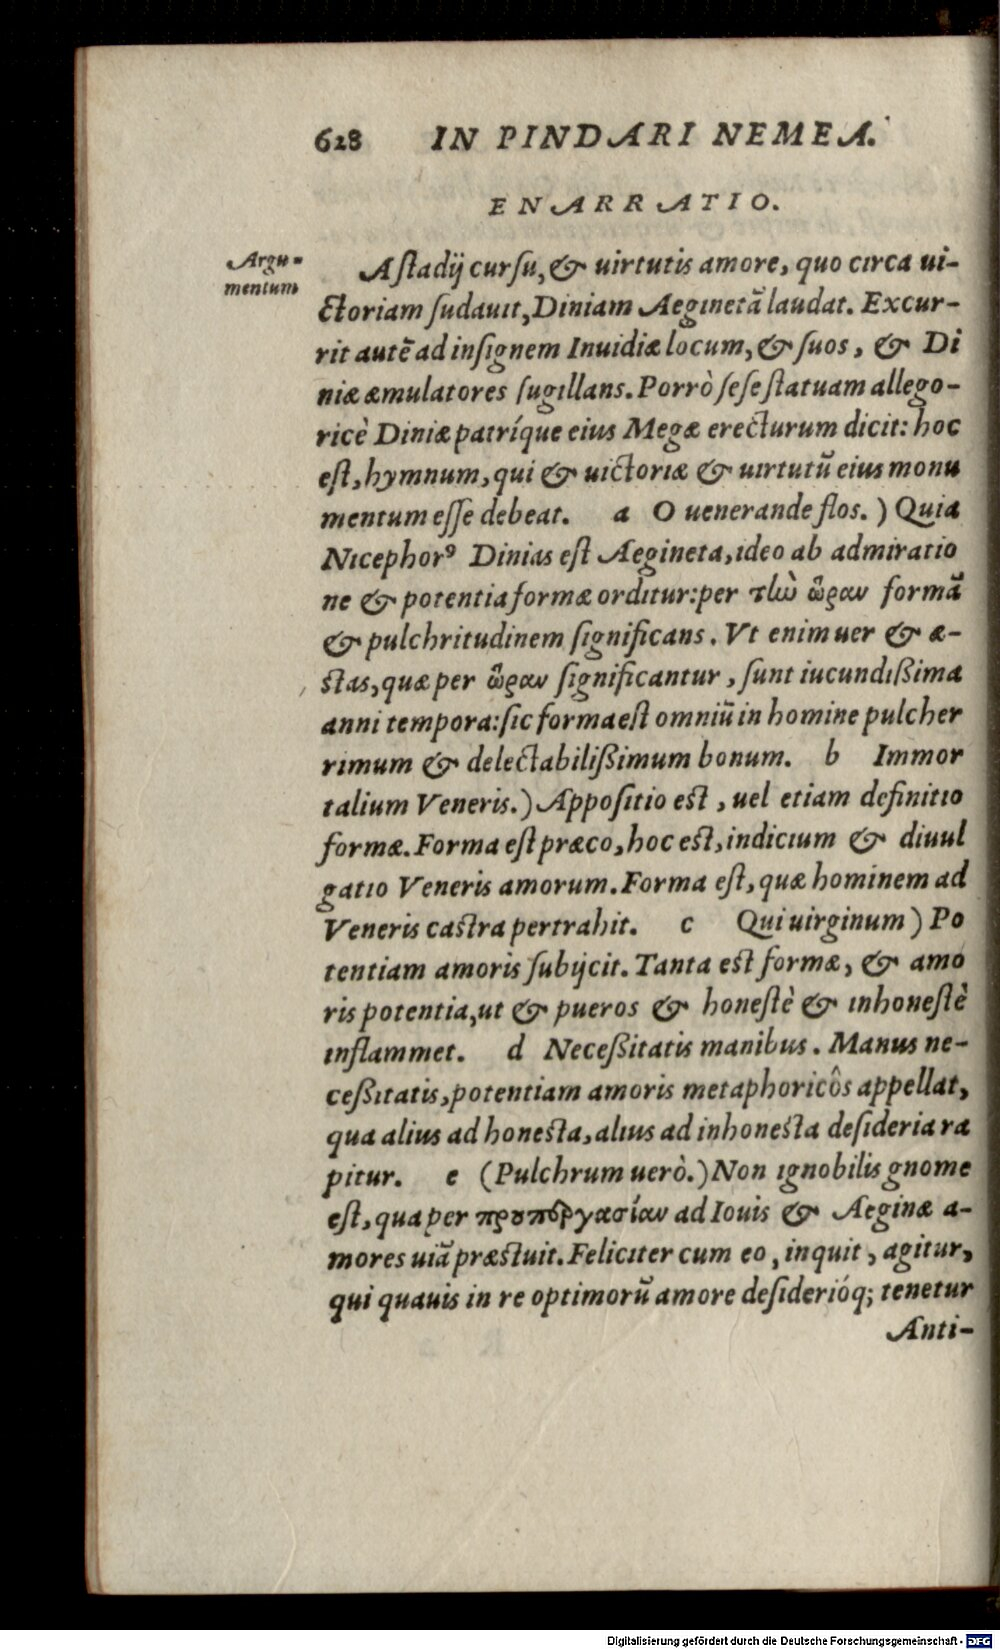 628 IN PINDARI NEMEA.
ENARRATIO.
Argu-
mentum
A ſtadij curſu, & uirtutis amore, quo circa ui-
ctoriam ſudauit, Diniam Aeginetã laudat. Excur-
rit autẽ ad inſignem Inuidiæ locum, & ſuos, & Di
niæ æmulatores ſugillans. Porrò ſeſe ſtatuam allego-
ricè Diniæ patríque eius Megæ erecturum dicit: hoc
eſt, hymnum, qui & uictoriæ & uirtutũ eius monu
mentum eſſe debeat. a O uenerande flos. ) Quia
Nicephorꝰ Dinias eſt Aegineta, ideo ab admiratio
ne & potentia formæ orditur: per τὴν ὥραν formã
& pulchritudinem ſignificans. Vt enim uer & æ-
ſtas, quæ per ὥραν ſignificantur, ſunt iucundißima
anni tempora: ſic forma eſt omniũ in homine pulcher
rimum & delectabilißimum bonum. b Immor
talium Veneris.) Appoſitio eſt, uel etiam definitio
formæ. Forma eſt præco, hoc eſt, indicium & diuul
gatio Veneris amorum. Forma eſt, quæ hominem ad
Veneris caſtra pertrahit. c Qui uirginum ) Po
tentiam amoris ſubijcit. Tanta eſt formæ, & amo
ris potentia, ut & pueros & honeſtè & inhoneſtè
inflammet. d Neceßitatis manibus. Manus ne-
ceßitatis, potentiam amoris metaphoricôs appellat,
qua alius ad honeſta, alius ad inhoneſta deſideria ra
pitur. e (Pulchrum uerò.) Non ignobilis gnome
eſt, qua per προυπεργασίαν ad Iouis & Aeginæ a-
mores uiã præſtuit. Feliciter cum eo, inquit, agitur,
qui quauis in re optimorũ amore deſiderióq; tenetur
Anti-
Digitalisierung gefördert durch die Deutsche Forschungsgemeinschaft - DFG